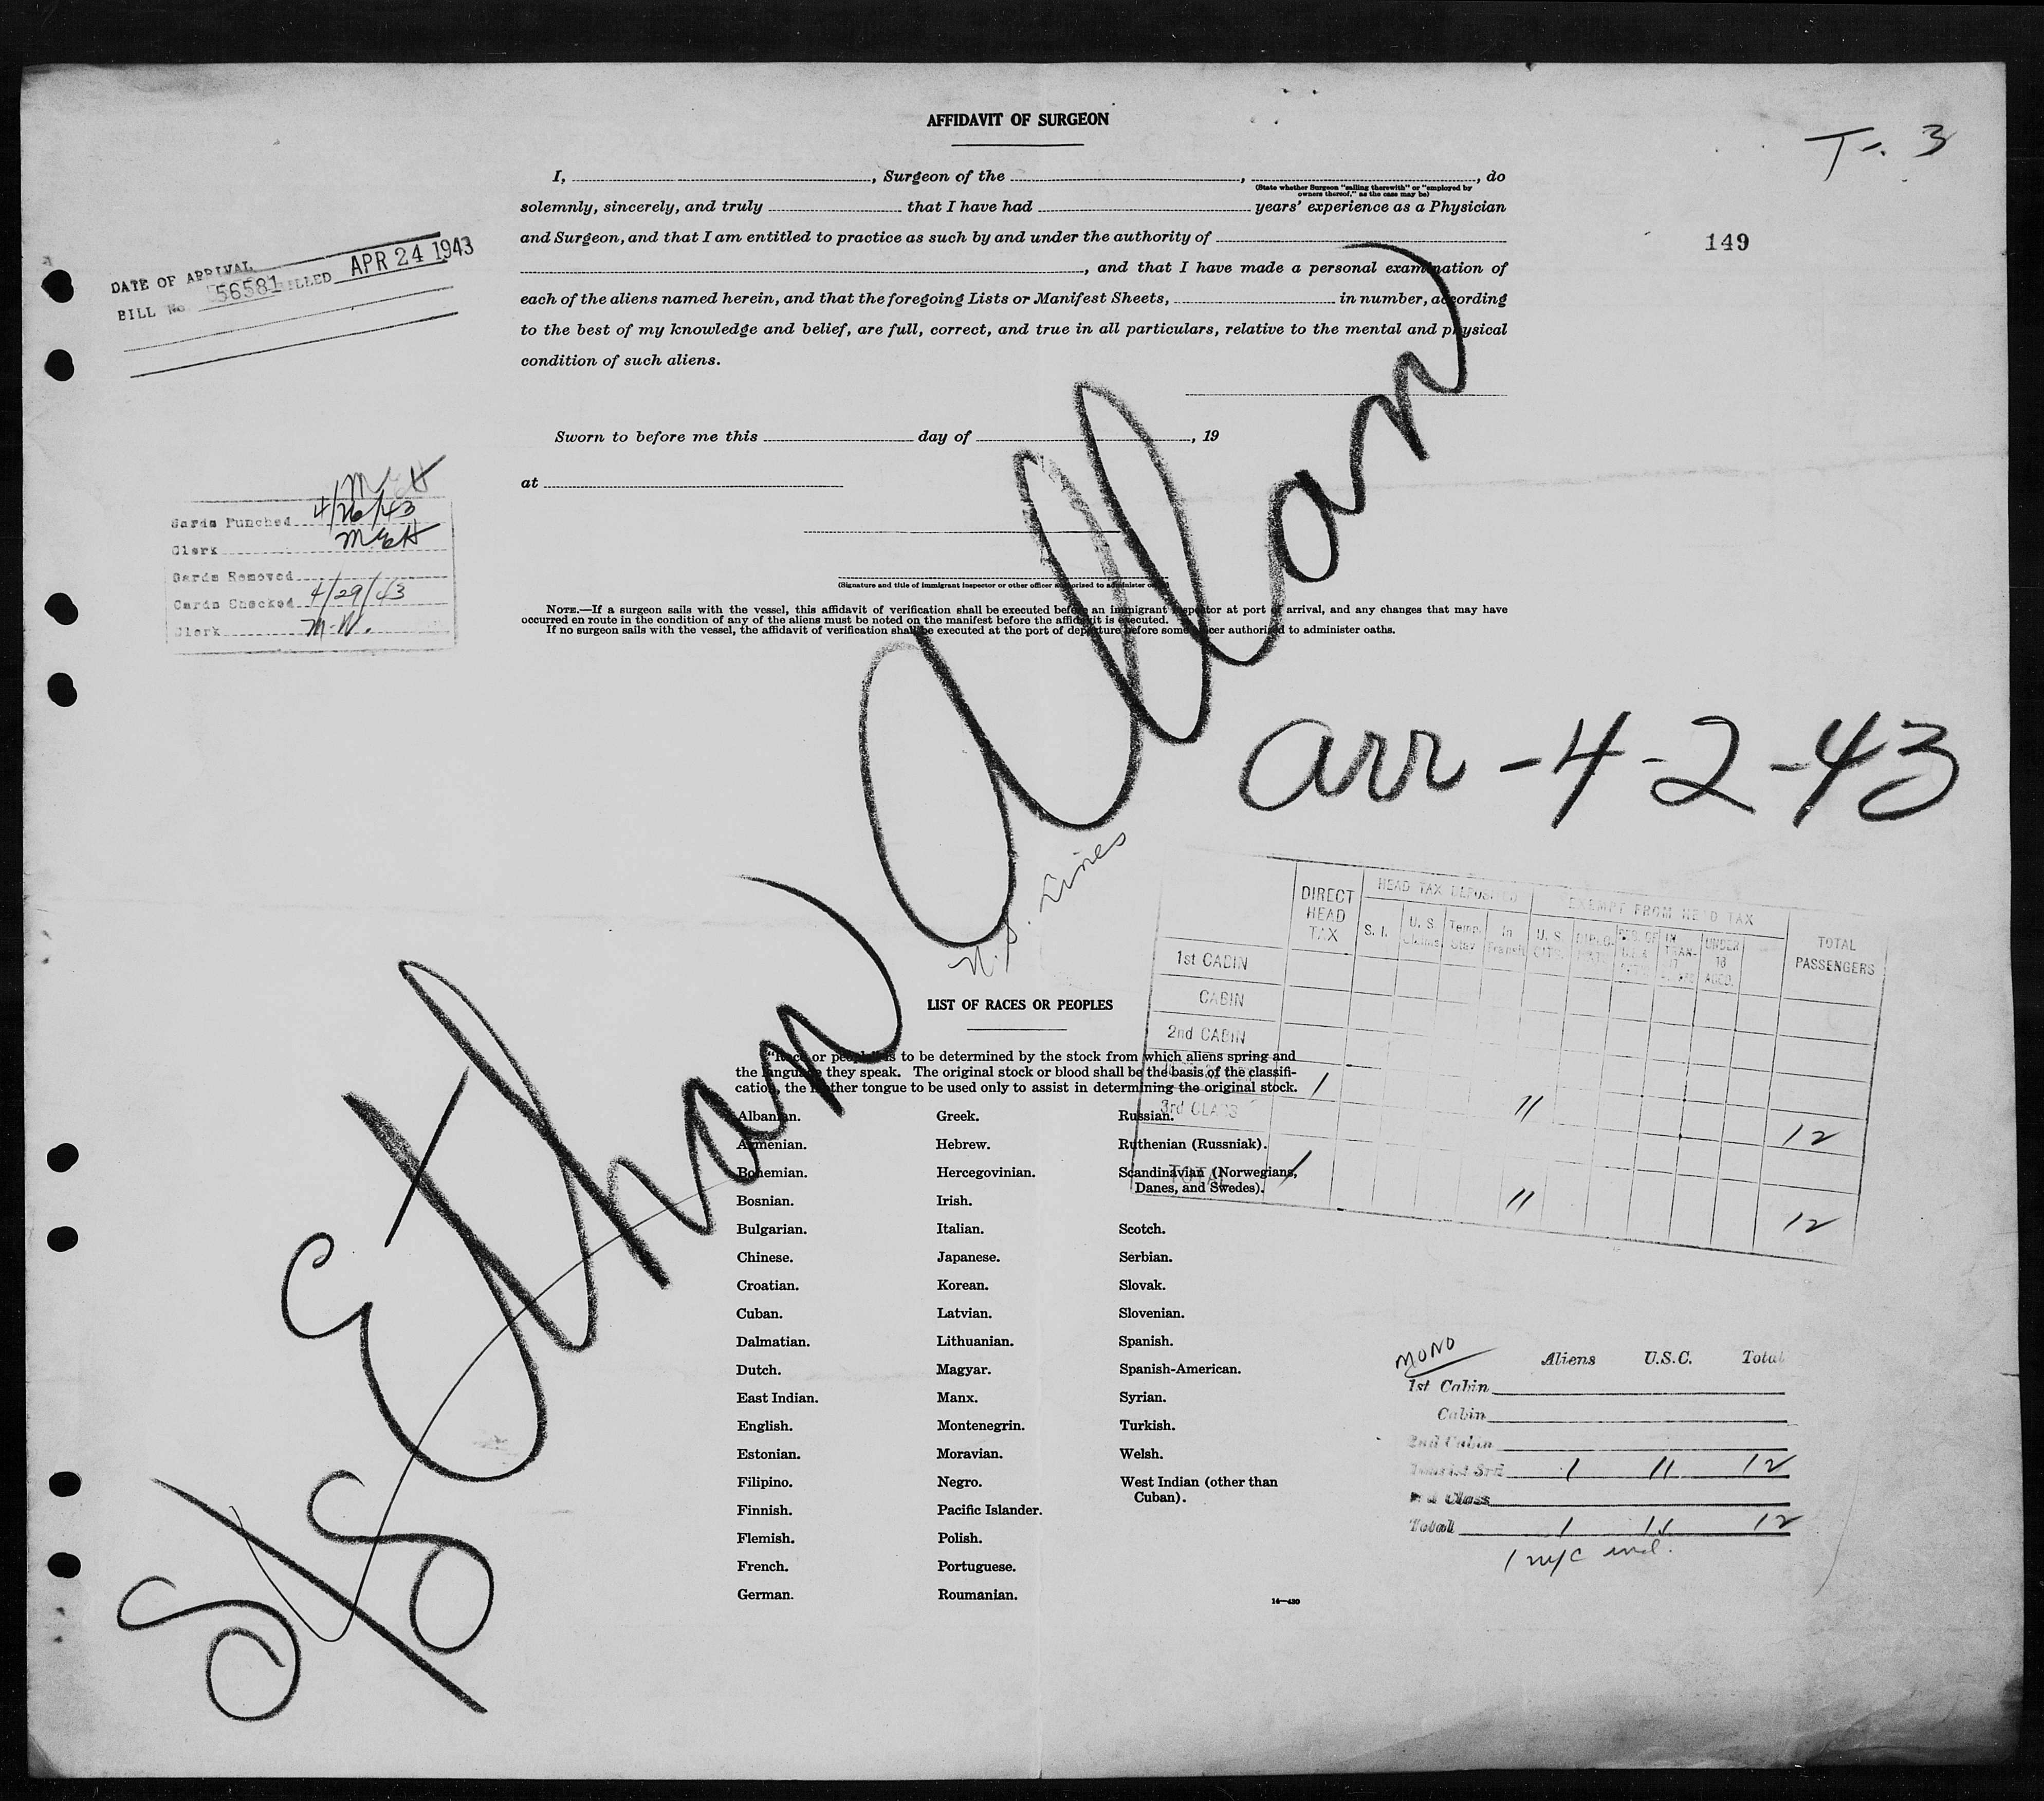 AFFIDAVIT OF SURGEON
T-. 3
I, , Surgeon of the , , do
(State whether Surgeon "sailing therewith" or "employed by
owners thereof," as the case may be)
solemnly, sincerely, and truly that I have had years' experience as a Physician
and Surgeon, and that I am entitled to practice as such by and under the authority of
149
, and that I have made a personal examination of
each of the aliens named herein, and that the foregoing Lists or Manifest Sheets, in number, according
to the best of my knowledge and belief, are full, correct, and true in all particulars, relative to the mental and physical
condition of such aliens.
DATE OF ARRIVAL
BILL No. 56581 BILLED APR 24 1943
Sworn to before me this day of , 19
at
4/26/43
Cards Punched
Clerk
Cards Removed
Cards Checked 4/29/43
Clerk M.W.
(Signature and title of immigrant inspector or other officer authorized to administer oaths)
NOTE.—If a surgeon sails with the vessel, this affidavit of verification shall be executed before an immigrant inspector at port of arrival, and any changes that may have
occurred en route in the condition of any of the aliens must be noted on the manifest before the affidavit is executed.
If no surgeon sails with the vessel, the affidavit of verification shall be executed at the port of departure before some officer authorized to administer oaths.
S/S Ethan Allan
arr-4-2-43
N. S. Lines
DIRECT HEAD TAX
HEAD TAX DEPOSITED
EXEMPT FROM HEAD TAX
TOTAL PASSENGERS
S. I. U. S. Claims Temp. Stay In Transit U. S. CITS. UNDER 16 ACCD.
1st CABIN
CABIN
2nd CABIN
1 11 12
3rd CLASS
TOTAL 1 11 12
LIST OF RACES OR PEOPLES
"Race or people" is to be determined by the stock from which aliens spring and
the language they speak. The original stock or blood shall be the basis of the classifi-
cation, the mother tongue to be used only to assist in determining the original stock.
Albanian. Greek. Russian.
Armenian. Hebrew. Ruthenian (Russniak).
Bohemian. Hercegovinian. Scandinavian (Norwegians,
Danes, and Swedes).
Bosnian. Irish.
Bulgarian. Italian. Scotch.
Chinese. Japanese. Serbian.
Croatian. Korean. Slovak.
Cuban. Latvian. Slovenian.
Dalmatian. Lithuanian. Spanish.
Dutch. Magyar. Spanish-American.
East Indian. Manx. Syrian.
English. Montenegrin. Turkish.
Estonian. Moravian. Welsh.
Filipino. Negro. West Indian (other than
Cuban).
Finnish. Pacific Islander.
Flemish. Polish.
French. Portuguese.
German. Roumanian.
14—430
MONO
Aliens U.S.C. Total
1st Cabin
Cabin
2nd Cabin
1 11 12
Class
Total 1 11 12